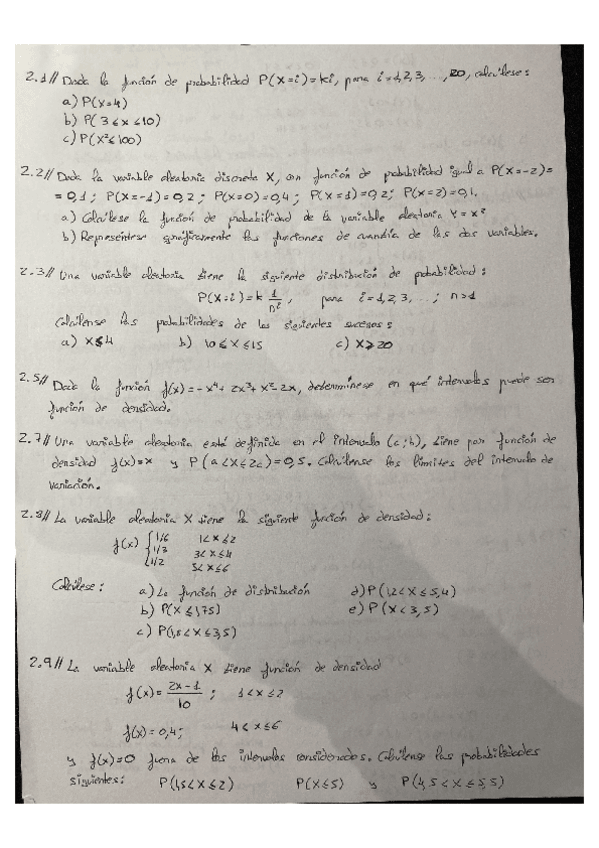 2.1// Dada la función de probabilidad P(X=i)=ki, para i=1,2,3,...,20, calcúlese:
a) P(X=4)
b) P(3≤x≤10)
c) P(X²≤100)
2.2// Dada la variable aleatoria discreta X, con función de probabilidad igual a P(X=-2)=
=0,1; P(X=-1)=0,2; P(X=0)=0,4; P(X=1)=0,2; P(X=2)=0,1.
a) Calcúlese la función de probabilidad de la variable aleatoria Y=X²
b) Represéntese gráficamente las funciones de cuantía de las dos variables.
2.3// Una variable aleatoria tiene la siguiente distribución de probabilidad:
P(X=i)=k 1/nⁱ, para i=1,2,3,...; n>1
Calcúlense las probabilidades de los siguientes sucesos:
a) X≤4 b) 10≤X≤15 c) X≥20
2.5// Dada la función f(x)=-x⁴+2x³+x²-2x, determínese en qué intervalos puede ser
función de densidad.
2.7// Una variable aleatoria está definida en el intervalo (a;b), tiene por función de
densidad f(x)=x y P(a<X≤2a)=0,5. Calcúlense los límites del intervalo de
variación.
2.8// La variable aleatoria X tiene la siguiente función de densidad:
f(x) { 1/6 1<x≤2
1/3 3<x≤4
1/2 5<x≤6
Calcúlese: a) La función de distribución d) P(1,2<X≤5,4)
b) P(X≤1,75) e) P(X<3,5)
c) P(1,5<X≤3,5)
2.9// La variable aleatoria X tiene función de densidad
f(x)= 2x-1/10 ; 1<x≤2
f(x)=0,4; 4<x≤6
y f(x)=0 fuera de los intervalos considerados. Calcúlense las probabilidades
siguientes: P(1,5<X≤2) P(X≤5) y P(4,5<X≤5,5)